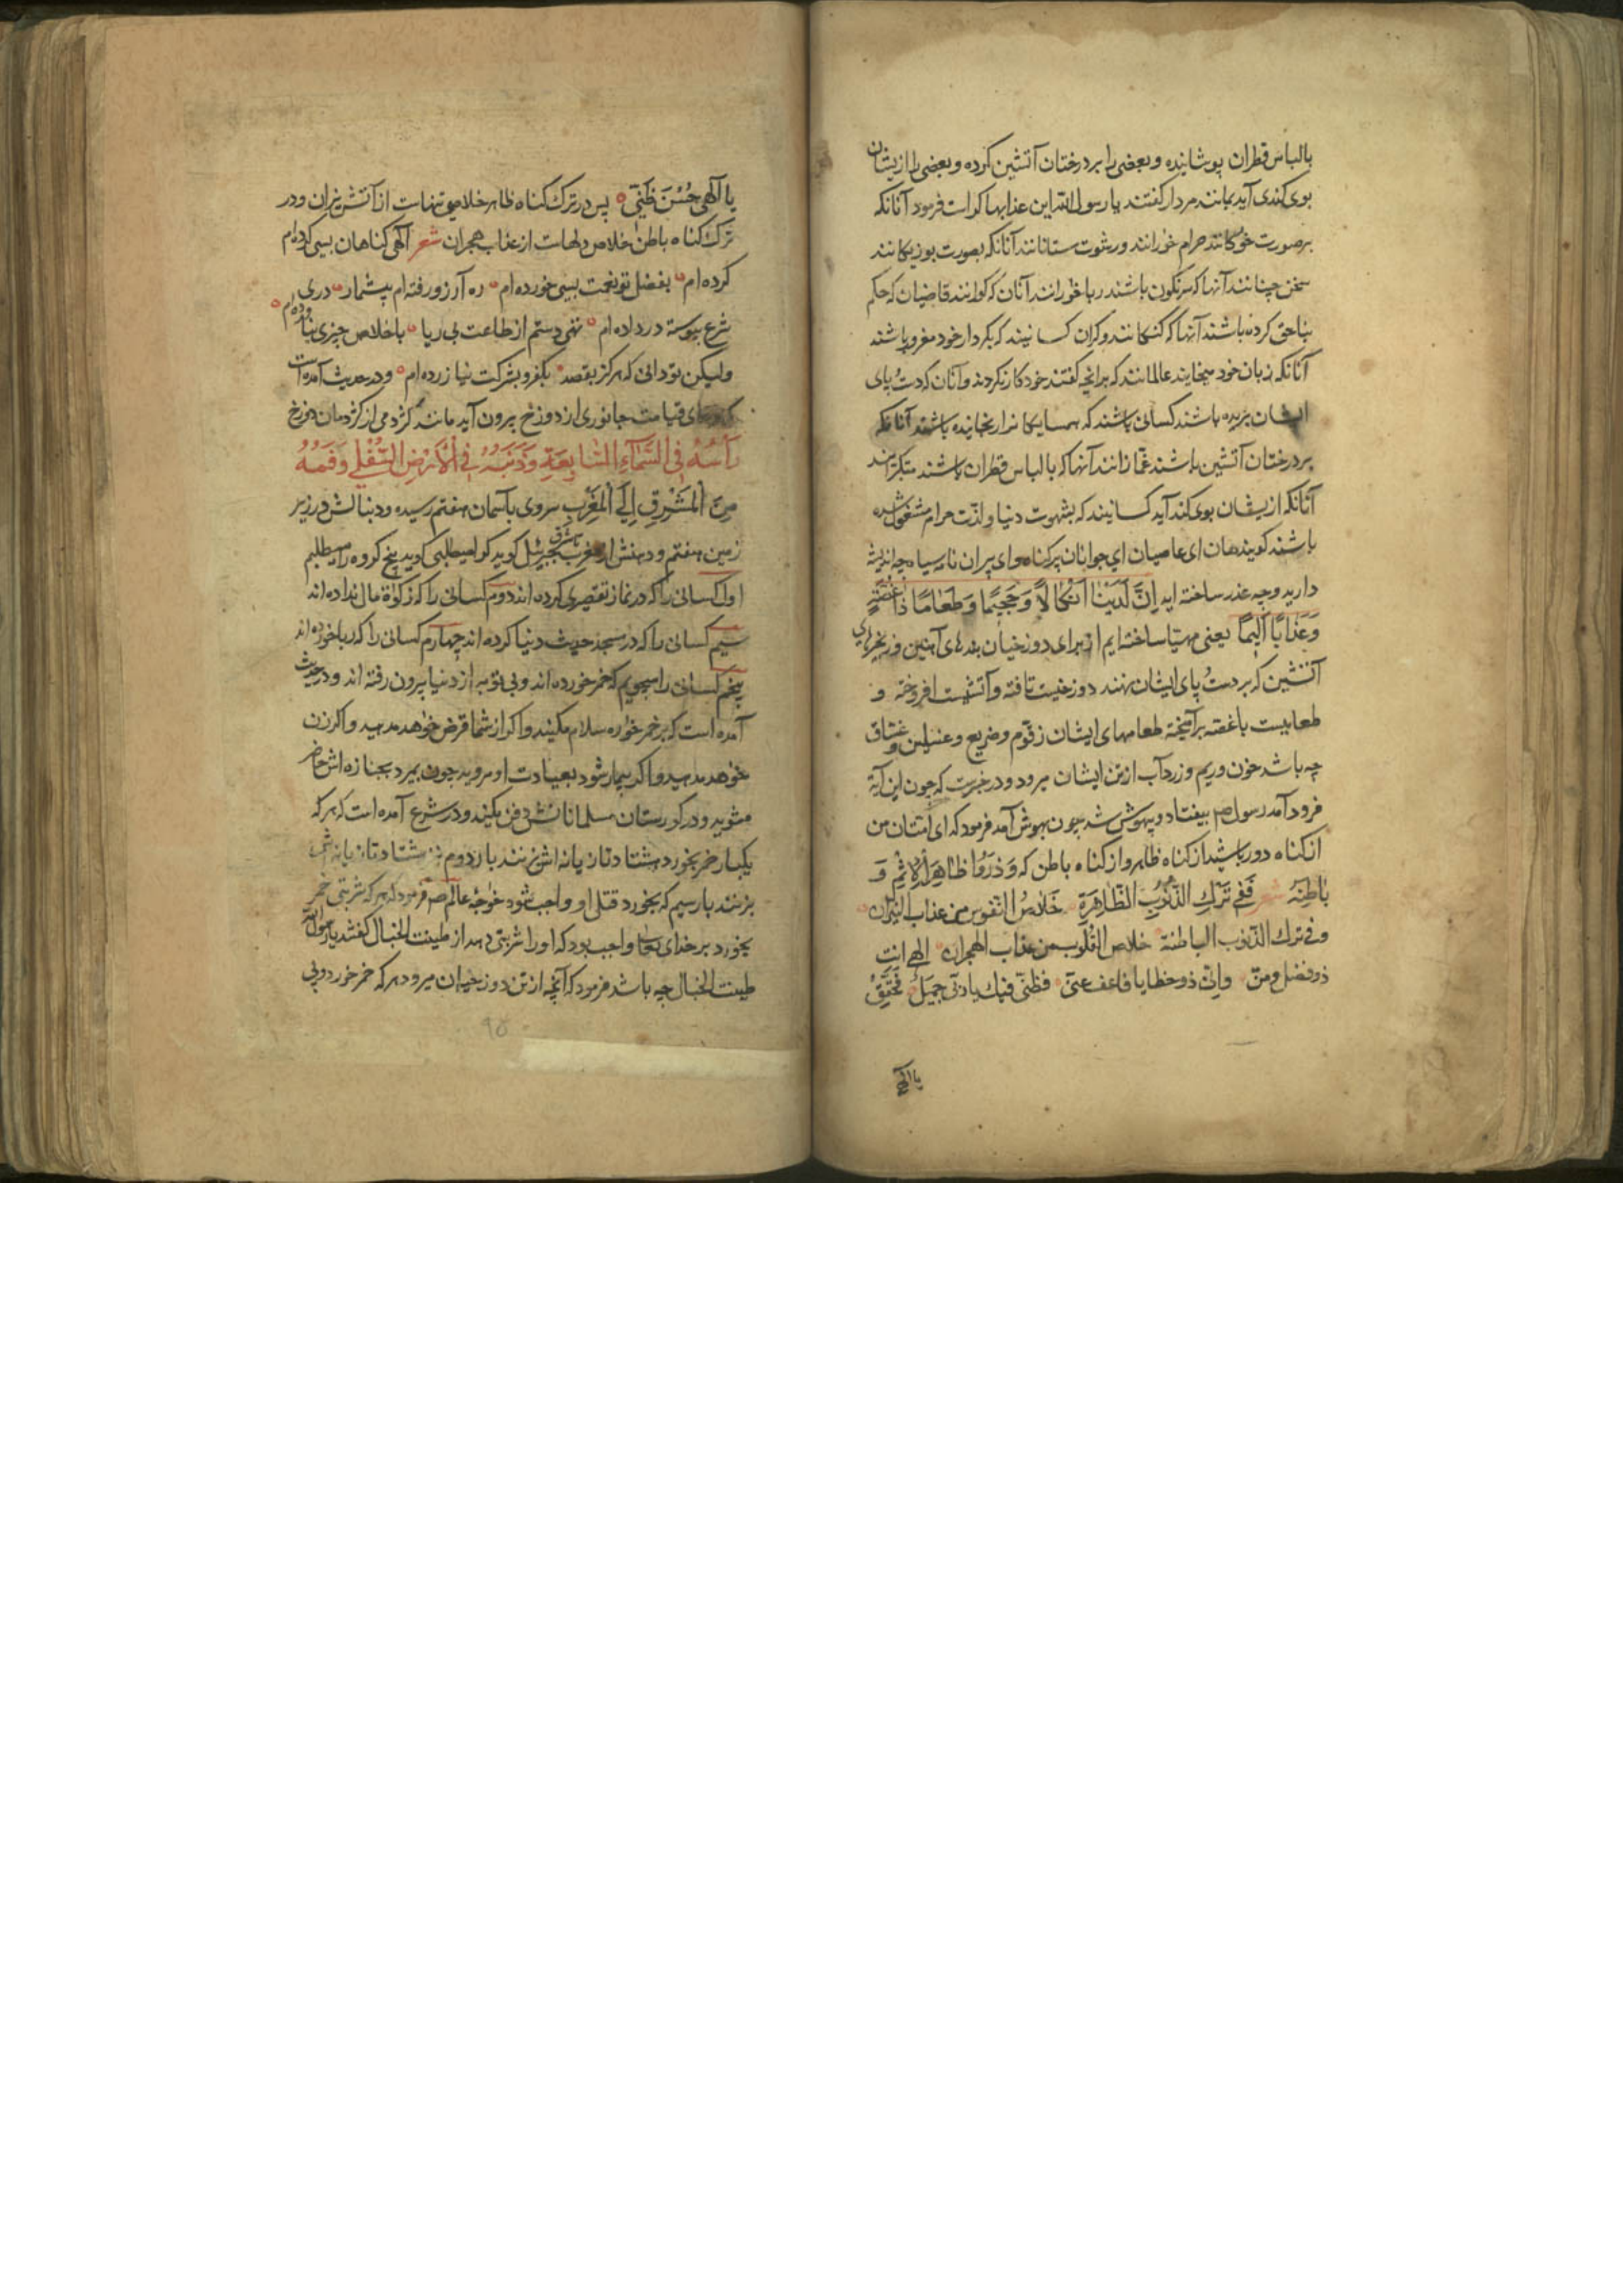 بالباس قطران پوشانیده و بعضی را بر درختان آتشین کرده و بعضی را از یشان
بوی کندی آید بمانند مردار کفتند یا رسول الله این عذابها کراست فرمود آنانکه
بر صورت خوکانند حرام خورانند و رشوت ستانانند آنانکه بصورت بوزینکانند
سخن چنانند آنها که سرنکون باشند ربا خورانند آنان که کورانند قاضیان که حکم
بناحق کرده باشند آنها که کنکانند و کران کسانیند که بکردار خود مغرور باشند
آنانکه زبان خود میخایند عالمانند که برانچه کفتند خود کار نکردند و آنان که دست و پای
ایشان بریده باشند کسانی باشند که همسایکانرا رنجانیده باشند آنانکه
بر درختان آتشین باشند غمازانند آنها که بالباس قطران باشند متکبرانند
آنانکه ازیشان بوی کند آید کسانیند که بشهوت دنیا و لذت حرام مشغول شده
باشند کویند هان ای عاصیان ای جوانان پرکناه و ای پیران نامه سیاه چه اندیشه
دارید و چه عذر ساخته اید اِنَّ لَدَیْنَا اَنْکَالًا وَ جَحِیمًا وَ طَعَامًا ذَا غُصَّةٍ
وَ عَذَابًا اَلِیمًا یعنی مهیا ساخته ایم از برای دوزخیان بندهای آهنین و زنجیرهای
آتشین که بر دست و پای ایشان نهند دوزخیست تافته و آتشیست افروخته و
طعامیست با غصه برآمیخته طعامهای ایشان زقوم و ضریع و غسلین و غساق
چه باشد خون و ریم و زرداب از تن ایشان میرود و در خبرست که چون این آیة
فرود آمد رسول ص بیفتاد و بیهوش شد چون بهوش آمد فرمود که ای امتان من
از کناه دور باشید از کناه ظاهر و از کناه باطن که وَ ذَرُوا ظَاهِرَ الْاِثْمِ وَ
بَاطِنَهُ شعر فَفِی تَرْكِ الذُّنُوبِ الظَّاهِرَةِ خَلَاصُ النُّفُوسِ مِنْ عذاب النیران
و فی ترك الذنوب الباطنة خلاص القلوب من عذاب الهجران الهی انت
ذو فضل و منّ و انّی ذو خطایا فاعف عنّی فظنّی فیك یا ربّی جمیل فَحَقِّقْ
یا الهی
یا اِلٰهی حُسْنَ ظَنِّی پس در ترك کناه ظاهر خلاصی تنهاست از آتش نیران و در
ترك کناه باطن خلاص دلهاست از عذاب هجران شعر الٓهی کناهان بسی
کرده ام بفضل تو نعمت بسی خورده ام ره آرزو رفته ام بیشمار دری
شرع پیوسته درداده ام تهی دستم از طاعت بی ریا باخلاص چیزی
ولیکن تو دانی که هرکز بقصد بکفر و بشرکت نیازرده ام و در حدیث آمده است
که فردای قیامت جانوری از دوزخ بیرون آید مانند کژدمی از کژدمان دوزخ
رَأْسُهُ فِی السَّمَآءِ السَّابِعَةِ وَ ذَنَبُهُ فِی الْاَرْضِ السُّفْلٰی وَ فَمُهُ
مِنَ الْمَشْرِقِ اِلَی الْمَغْرِبِ سروی بآسمان هفتم رسیده و دنبالش در زیر
زمین هفتم و دهنش از مغرب تا شرق جبرئیل کوید کرا میطلبی کوید پنج کروه را میطلبم
اول کسانی را که در نماز تقصیری کرده اند دوم کسانی را که زکوٰة مال نداده اند
سیم کسانی را که در مسجد حدیث دنیا کرده اند چهارم کسانی را که ربا خورده اند
پنجم کسانی را میجویم که خمر خورده اند و بی توبه از دنیا بیرون رفته اند و در حدیث
آمده است که بر خمرخواره سلام مکنید و اکر از شما قرض خواهد مدهید و اکر زن
خواهد مدهید و اکر بیمار شود بعیادت او مروید چون بمیرد بجنازه اش حاضر
مشوید و در کورستان مسلمانانش دفن مکنید و در شرع آمده است که هر که
یکبار خمر بخورد هشتاد تازیانه اش بزنند بار دوم نیز هشتاد تازیانه اش
بزنند بار سیم که بخورد قتل او واجب شود خواجه عالم ص فرمود که هر که شربتی خمر
بخورد بر خدای تعالی واجب بود که او را شربتی دهد از طینت الخبال کفتند یا رسول الله
طینت الخبال چه باشد فرمود که آنچه از تن دوزخیان میرود هر که خمر خورد و بی
۹۵